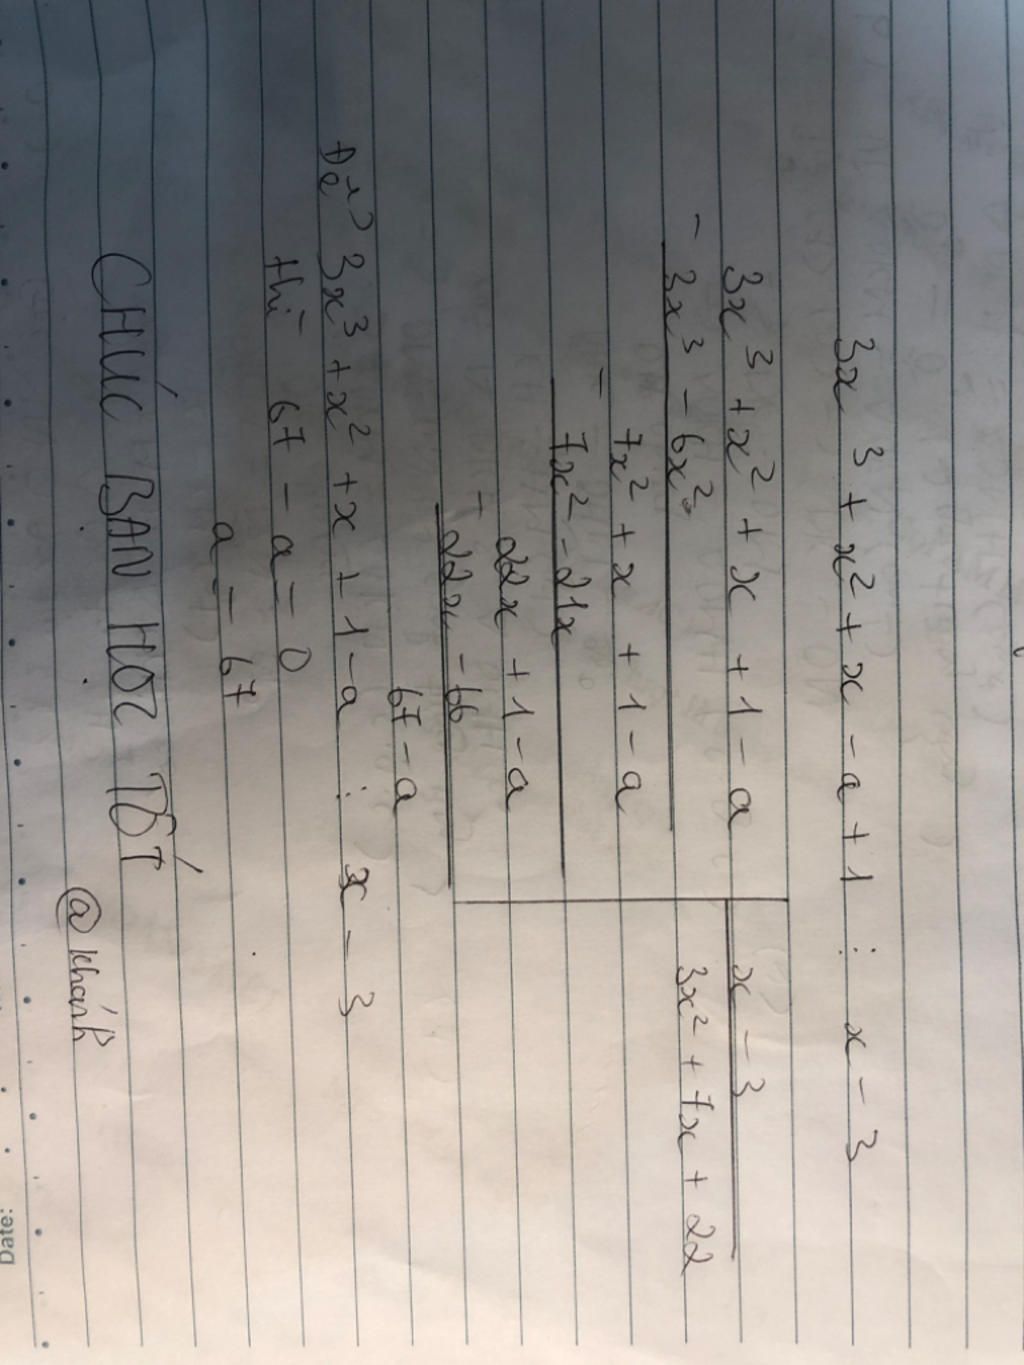 3x³ + x² + x - a + 1 : x - 3
3x³ + x² + x + 1 - a | x - 3
- 3x³ - 6x² | 3x² + 7x + 22
7x² + x + 1 - a
- 7x² - 21x
22x + 1 - a
- 22x - 66
67 - a
Để 3x³ + x² + x + 1 - a : x - 3
thì 67 - a = 0
a = 67
CHÚC BẠN HỌC TỐT
@khánh
Date: